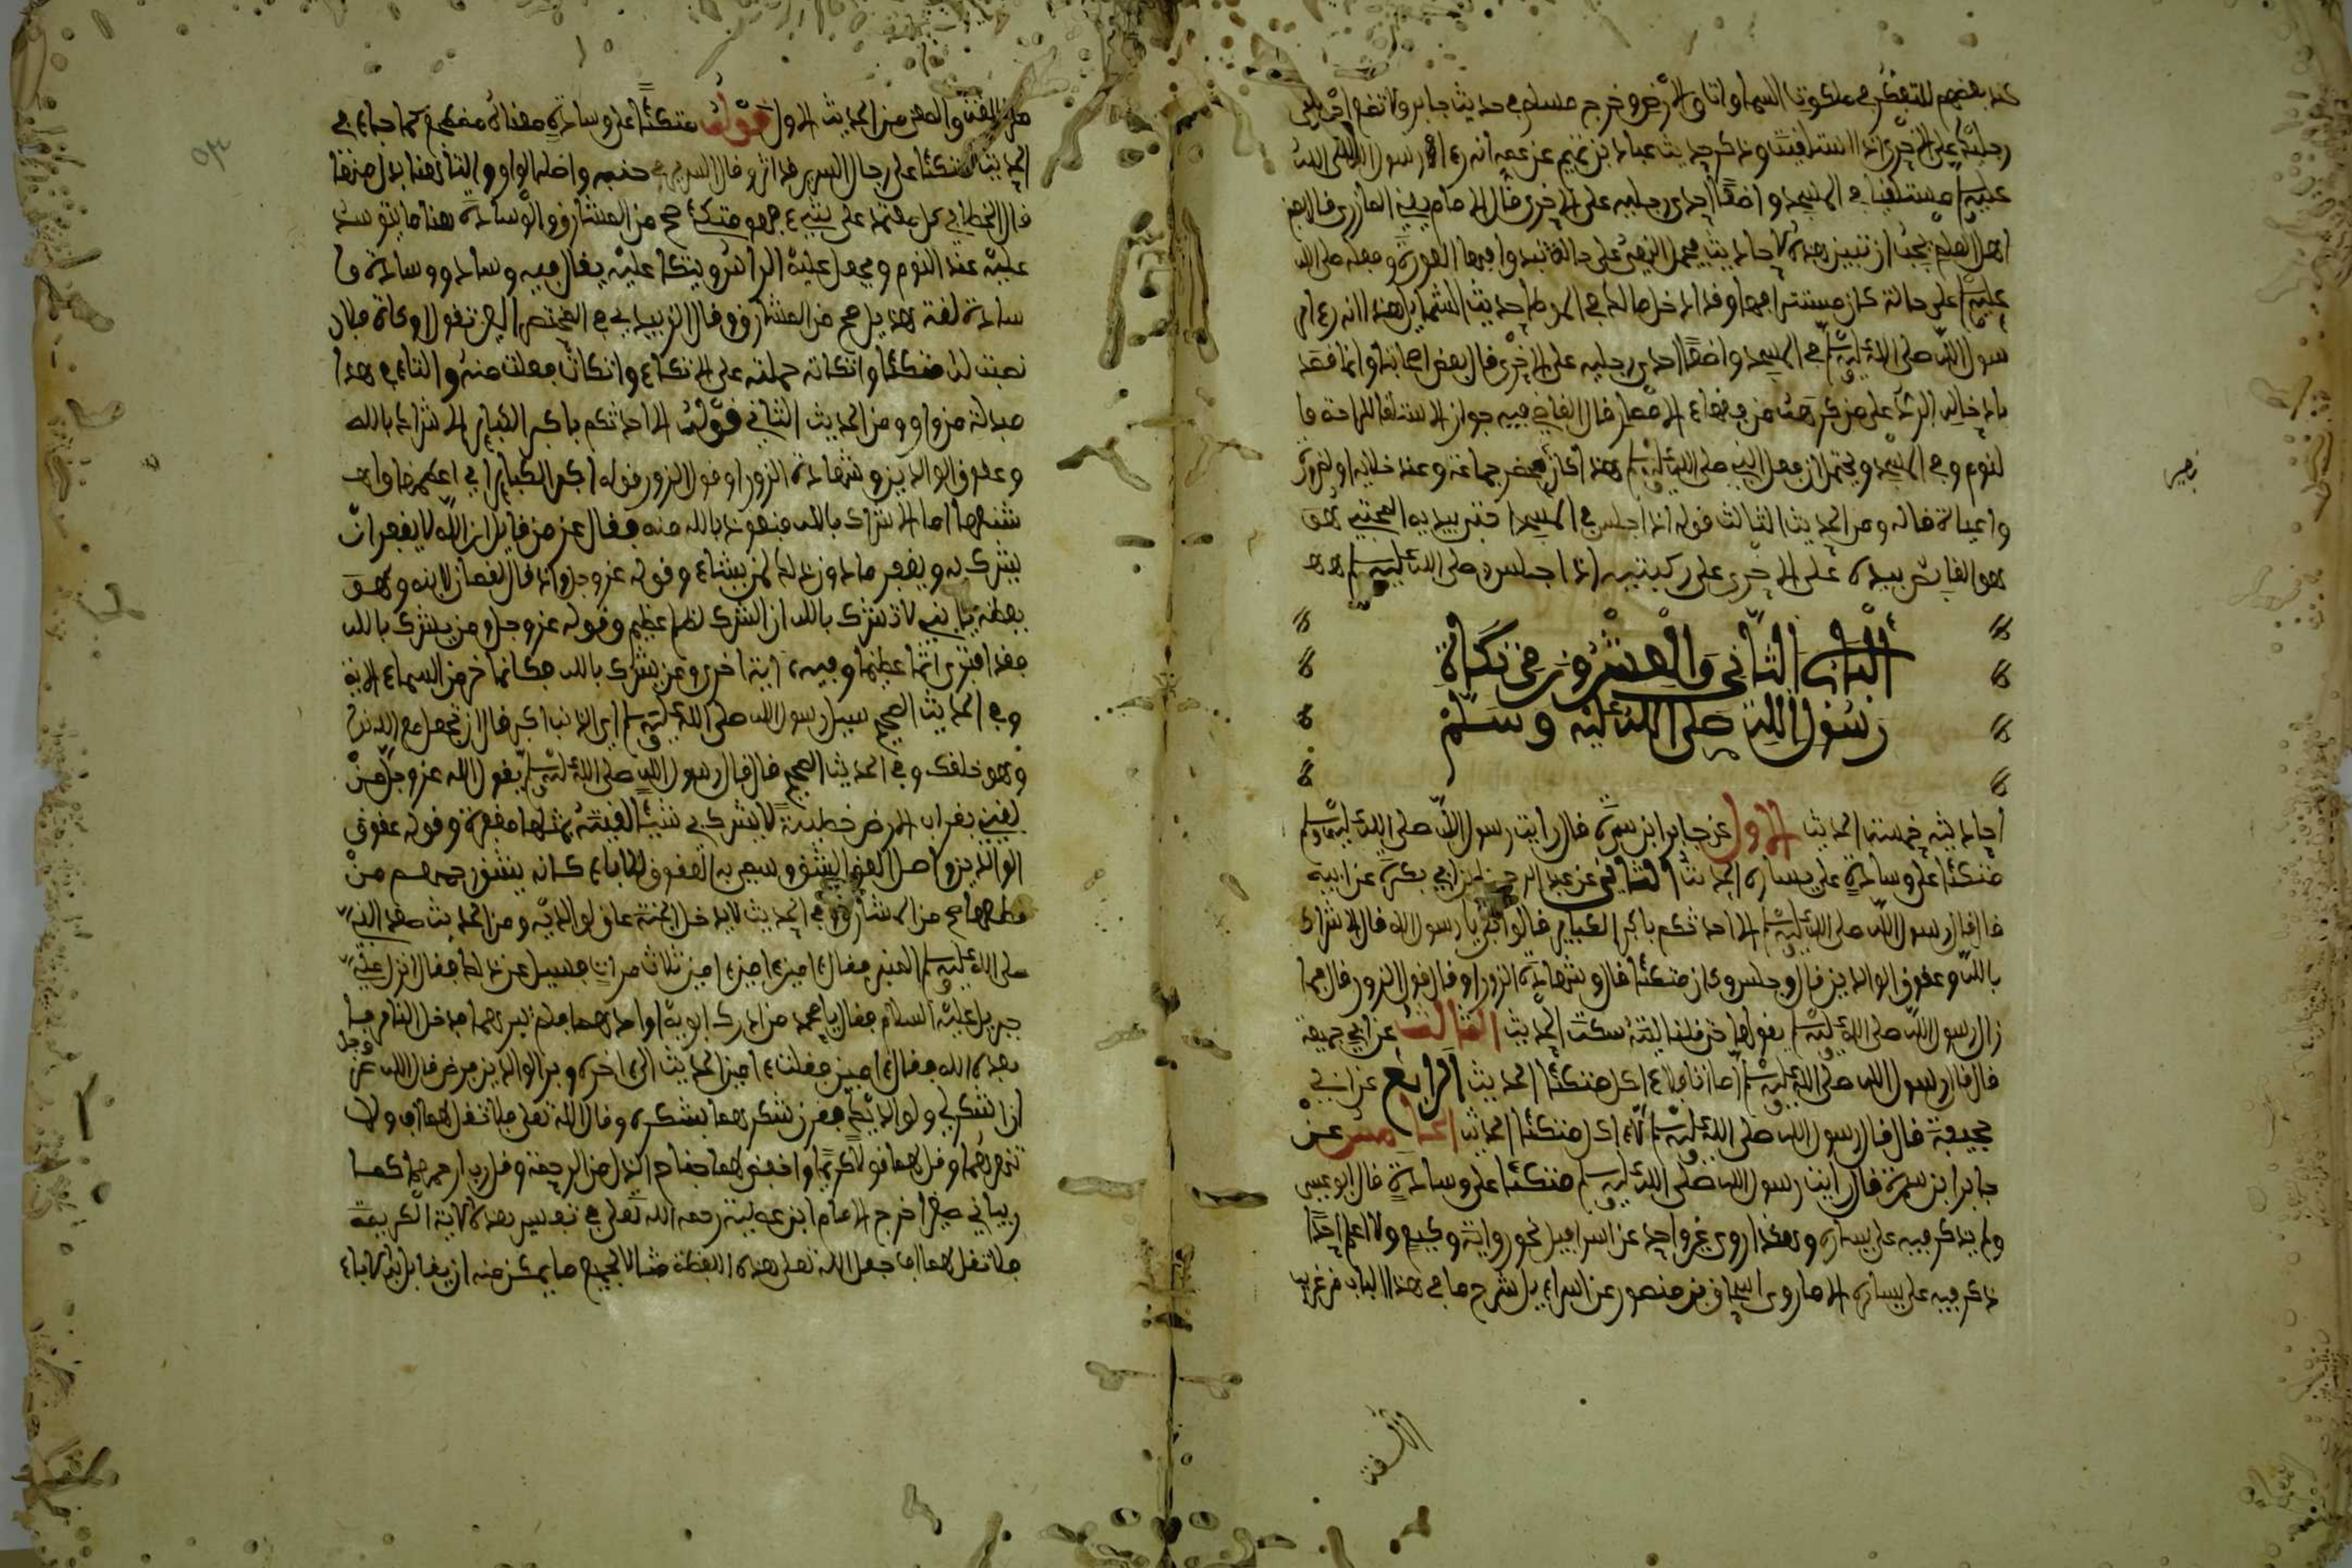 عند بعضهم للتفكر في ملكوت السماوات والأرض وخرج مسلم في حديث جابر ولا تضع إحدى
رجليك على الأخرى إذا استلقيت وذكر حديث عباد بن تميم عن عمه أنه رءا رسول الله صلى الله
عليه مستلقيا في المسجد واضعا إحدى رجليه على الأخرى قال الإمام يعني المازري قال بعض
أهل العلم يجب أن تبين هذه الأحاديث فيحمل النهي على حالة تبدوا فيها العورة وفعله صلى الله
عليه على حالة كان مستترا فيها وقد أدخل مالك في الموطإ حديث الشمايل هذا أنه رءا
رسول الله صلى الله عليه وسلم في المسجد واضعا إحدى رجليه على الأخرى قال بعض أصحابنا وإنما قصد
بإدخاله الرد على من كره من فقهاء الأمصار قال القاضي فيه جواز الاستلقا للراحة وا
لنوم وفي المسجد ويحتمل أن فعل النبي صلى الله عليه وسلم هذا كان بمحضر جماعة وعند خلائه أو لضرورة
وإعياء قاله ومن الحديث الثالث قوله إذا جلس في المسجد احتبى بيديه المحتبي هو
هو القابض بيده على الأخرى على ركبتيه إذا جلس صلى الله عليه وسلم
الباب الثاني والعشرون في تكأة
رسول الله صلى الله عليه وسلم
أحاديثه خمسة الحديث الأول عن جابر ابن سمرة قال رايت رسول الله صلى الله عليه وسلم
متكئا على وسادة على يساره الحديث الثاني عن عبد الرحمن بن أبي بكرة عن أبيه
قال قال رسول الله صلى الله عليه وسلم ألا أحدثكم بأكبر الكباير قالوا بلى يا رسول الله قال الإشراك
بالله وعقوق الوالدين قال وجلس وكان متكئا قال وشهادة الزور أو قال قول الزور قال فما
زال رسول الله صلى الله عليه وسلم يقولها حتى قلنا ليته سكت الحديث الثالث عن أبي جحيفة
قال قال رسول الله صلى الله عليه وسلم أما أنا فلا ءاكل متكئا الحديث الرابع عن أبي
جحيفة قال قال رسول الله صلى الله عليه وسلم لا ءاكل متكئا الحديث الخامس عن
جابر ابن سمرة قال رأيت رسول الله صلى الله عليه وسلم متكئا على وسادة قال أبو عيسى
ولم يذكر فيه على يساره وهكذا روى غير واحد عن اسراءيل نحو رواية وكيع ولا أعلم أحدا
ذكر فيه على يساره إلا ما روى اسحاق بن منصور عن اسراءيل شرح ما في هذا الباب من غريب
اللغة
اللغة والمعنى من الحديث الأول قوله متكئا على وسادة معناه مضطجع كما جاء في
الحديث متكئا على رمال السرير قد أثر رمال السرير في جنبه وأصله الواو والتاء هنا بدل منها
قال الخطابي كل معتمد على شيء فهو متكئ صح من المشارق والوسادة هنا ما يتوسد
عليه عند النوم ويجعل عليه الرأس ويتكأ عليه يقال فيه وساد ووسادة وا
سادة لغة هذيل صح من المشارق وقال الزبيدي في المختصر العين تقول أوكأت فلان
نصبت له متكئا وأتكأته حملته على الاتكاء واتكأت فعلت منه والتاء في هذا
مبدلة من واو ومن الحديث الثاني قوله ألا أحدثكم بأكبر الكباير الإشراك بالله
وعقوق الوالدين وشهادة الزور أو قول الزور قوله أكبر الكباير أي أعظمها وأ
شنعها أما الإشراك بالله فنعوذ بالله منه فقال عز من قايل إن الله لا يغفر أن
يشرك به ويغفر ما دون ذلك لمن يشاء وقوله عز وجل وإذ قال لقمان لابنه وهو
يعظه يا بني لا تشرك بالله إن الشرك لظلم عظيم وقوله عز وجل ومن يشرك بالله
فقد افترى إثما عظيما وفيه ءاية أخرى ومن يشرك بالله فكأنما خر من السماء الآية
وفي الحديث الصحيح سيل رسول الله صلى الله عليه وسلم أي الذنب أكبر قال أن تجعل مع الله ندا
وهو خلقك وفي الحديث الصحيح قال قال رسول الله صلى الله عليه وسلم يقول الله عز وجل من
لقيني بقراب الأرض خطيئة لا يشرك بي شيئا لقيته بمثلها مغفرة وقوله عقوق
الوالدين وأصل العق الشق وسمي به العقوق للآباء كأنه يشق رحمهم من
قطعها صح من المشارق وفي الحديث لا يدخل الجنة عاق لوالديه ومن الحديث صعد النبي
صلى الله عليه وسلم المنبر فقال ءامين ءامين ءامين ثلاث مرات فسيل عن ذلك فقال أنزل علي
جبريل عليه السلام فقال يا محمد من أدرك أبويه أو أحدهما فلم يبرهما فدخل النار فأ
بعده الله فقال ءامين فقلت ءامين الحديث إلى ءاخره وبر الوالدين فرض قال الله عز وجل
أن اشكر لي ولوالديك فقرن شكرهما بشكره وقال الله تعلى فلا تقل لهما أف ولا
تنهرهما وقل لهما قولا كريما واخفض لهما جناح الذل من الرحمة وقل رب ارحمهما كما
ربياني صغيرا خرج الإمام ابن عطية رحمه الله تعلى في تفسير هذه الآية الكريمة
فلا تقل لهما أف جعل الله تعلى هذه اللفظة مثالا لجميع ما يمكن منه أن يقابل به الآباء